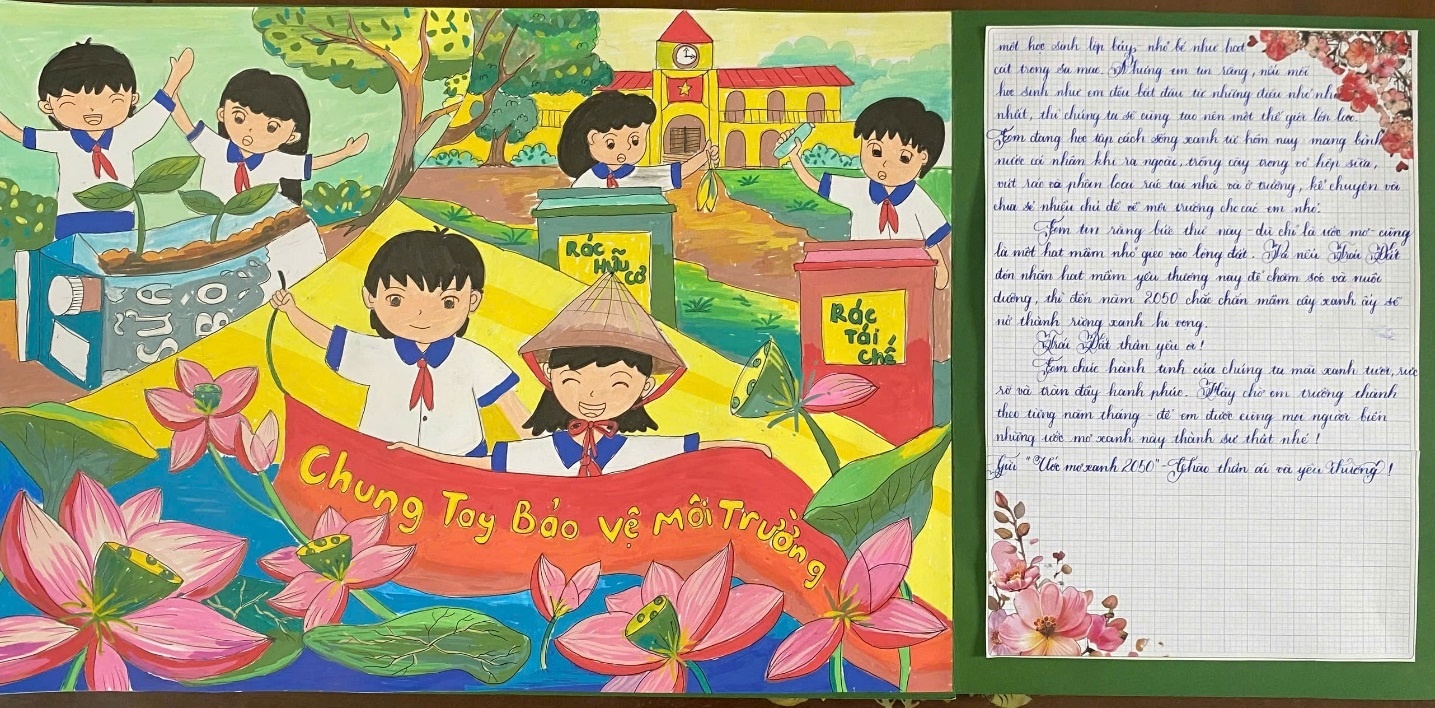 SỮA
BÒ
Rác
Hữu
cơ
Rác
Tái
chế
Chung Tay Bảo Vệ Môi Trường
một học sinh lớp bảy, nhỏ bé như hạt
cát trong sa mạc. Nhưng em tin rằng, nếu mỗi
học sinh như em đều bắt đầu từ những điều nhỏ
nhất, thì chúng ta sẽ cùng tạo nên một thế giới lớn lao.
Em đang học tập cách sống xanh từ hôm nay mang bình
nước cá nhân khi ra ngoài, trồng cây trong vỏ hộp sữa,
vứt rác và phân loại rác tại nhà và ở trường, kể chuyện và
chia sẻ nhiều chủ đề về môi trường cho các em nhỏ.
Em tin rằng bức thư này - dù chỉ là ước mơ - cũng
là một hạt mầm nhỏ gieo vào lòng đất. Và nếu Trái Đất
đón nhận hạt mầm yêu thương này để chăm sóc và nuôi
dưỡng, thì đến năm 2050 chắc chắn mầm cây xanh ấy sẽ
nở thành rừng xanh hi vọng.
Trái Đất thân yêu ơi!
Em chúc hành tinh của chúng ta mãi xanh tươi, rực
rỡ và tràn đầy hạnh phúc. Hãy chờ em trưởng thành
theo từng năm tháng - để em được cùng mọi người biến
những ước mơ xanh này thành sự thật nhé!
Gửi "Ước mơ xanh 2050" - Chào thân ái và yêu thương!